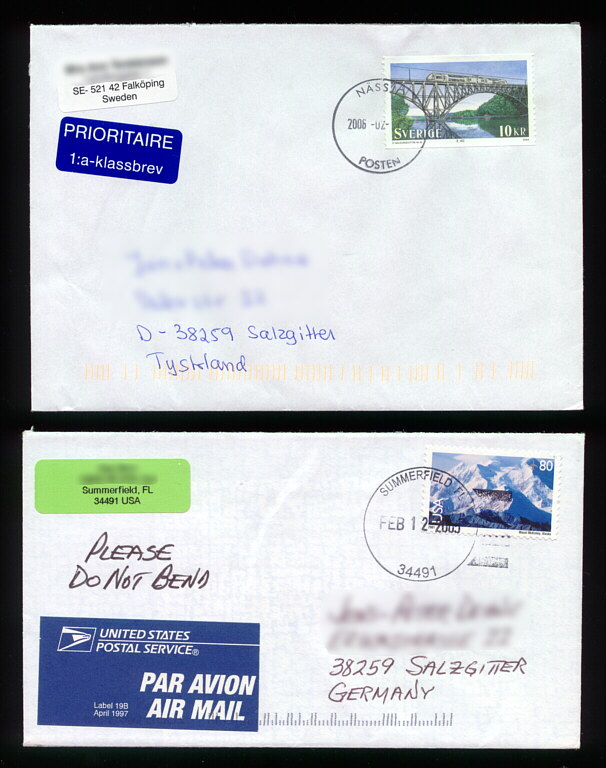 SE- 521 42 Falköping
Sweden
PRIORITAIRE
1:a-klassbrev
2006 -02-
POSTEN
SVERIGE 10 KR
D - 38259 Salzgitter
Tyskland
Summerfield, FL
34491 USA
SUMMERFIELD FL
FEB 12
34491
80
USA
PLEASE
DO NOT BEND
UNITED STATES
POSTAL SERVICE®
PAR AVION
AIR MAIL
Label 19B
April 1997
38259 SALZGITTER
GERMANY